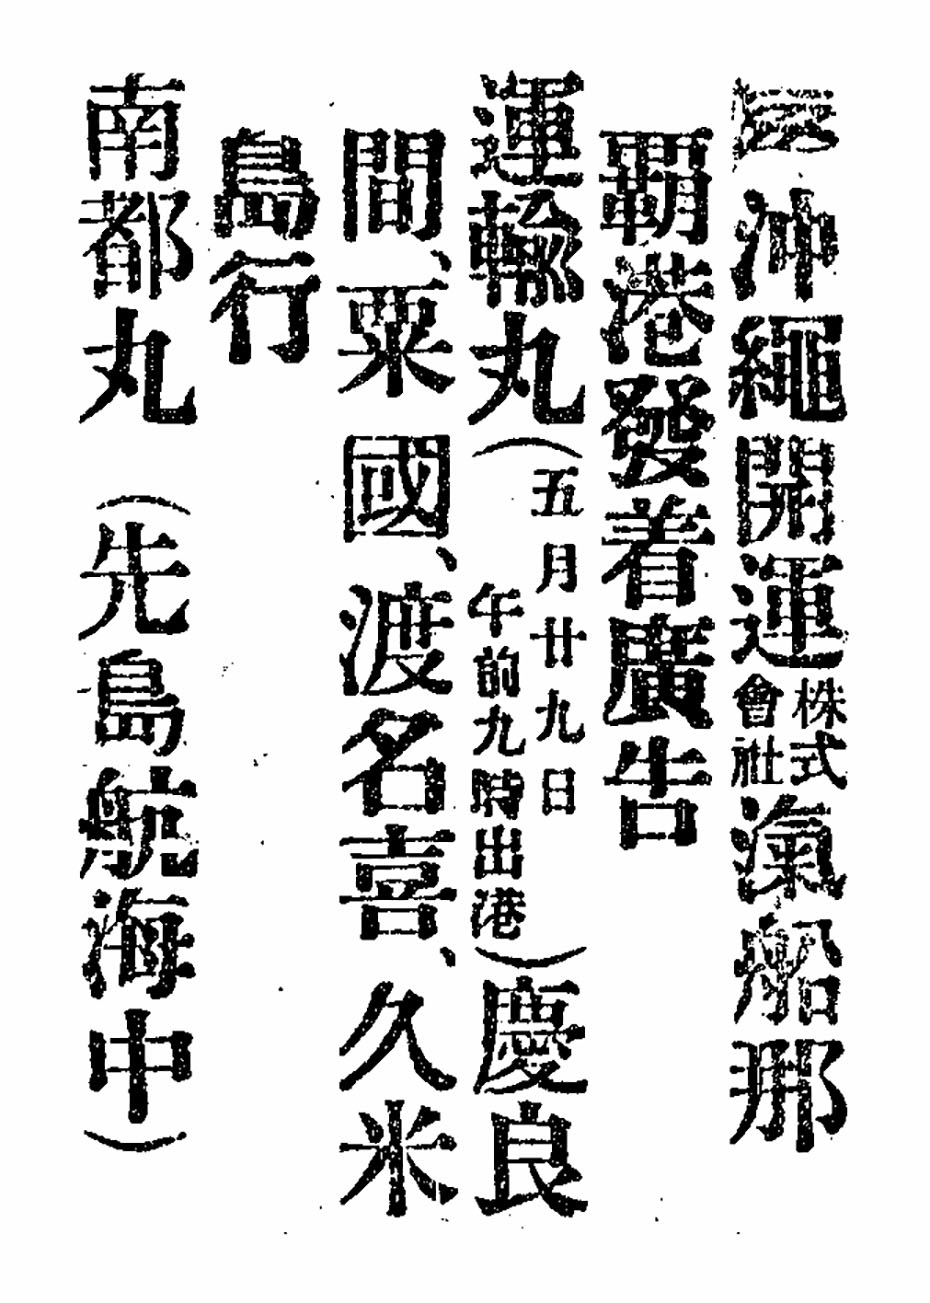 沖繩開運株式會社滊船那
覇港發着廣告
運輸丸(五月廿九日午前九時出港)慶良
間、粟國、渡名喜、久米
島行
南都丸(先島航海中)